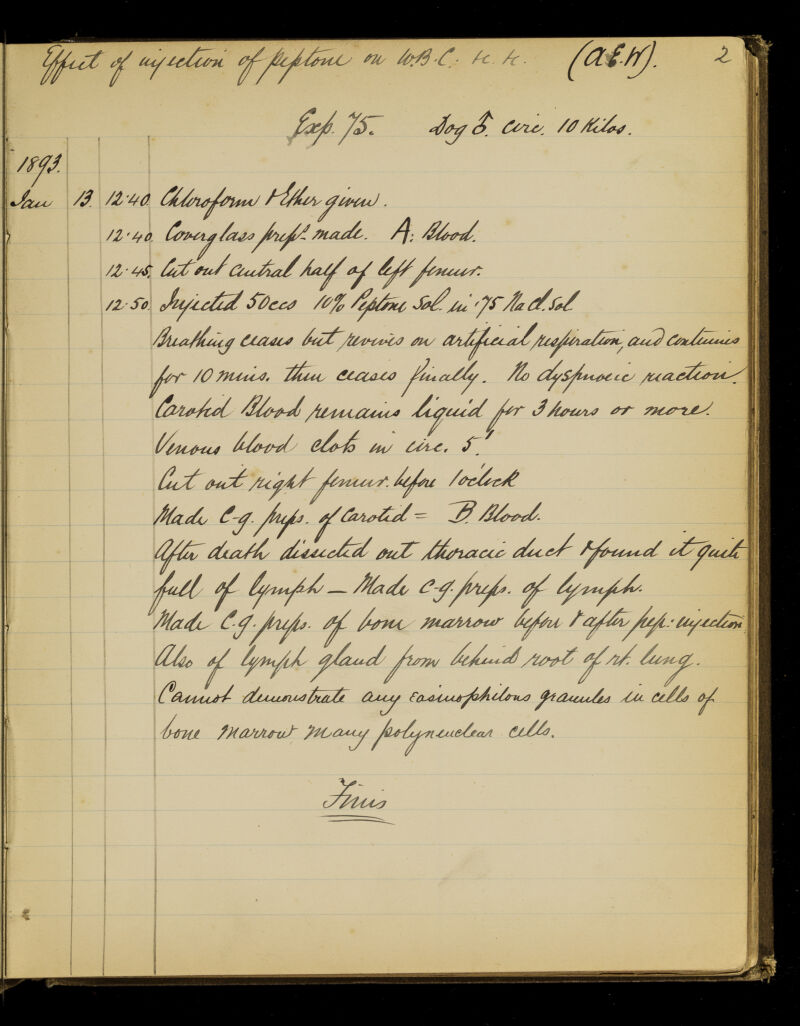 Effect of injection of peptone on W.B.C. &c. &c. (A.E.W). 2
Exp. 75. Dog circ. 10 Kilos.
1893.
Jan 13. 12.40 Chloroform & Ether given.
12.40 Coverglass prepts made. A: Blood.
12.45. Cut out central half of left femur.
12.50 Injected 50ccs 10% Peptone Sol. in .75 NaCl. Sol
Breathing ceases but revives on artificial respiration, and continues
for 10 mins. then ceases finally. No dyspnoeic reaction.
Carotid Blood remains liquid for 3 hours or more.
Venous blood clots in circ. 5'.
Cut out right femur. before 1 o'clock
Made C-g. preps. of Carotid = B. Blood.
After death dissected out thoracic duct & found it quite
full of lymph — Made c-g. preps. of lymph.
Made C.g. preps. of bone marrow before & after pep: injection
Also of lymph gland from behind root of rt. lung.
Cannot demonstrate any eosinophilous granules in cells of
bone marrow many polynuclear cells.
Finis